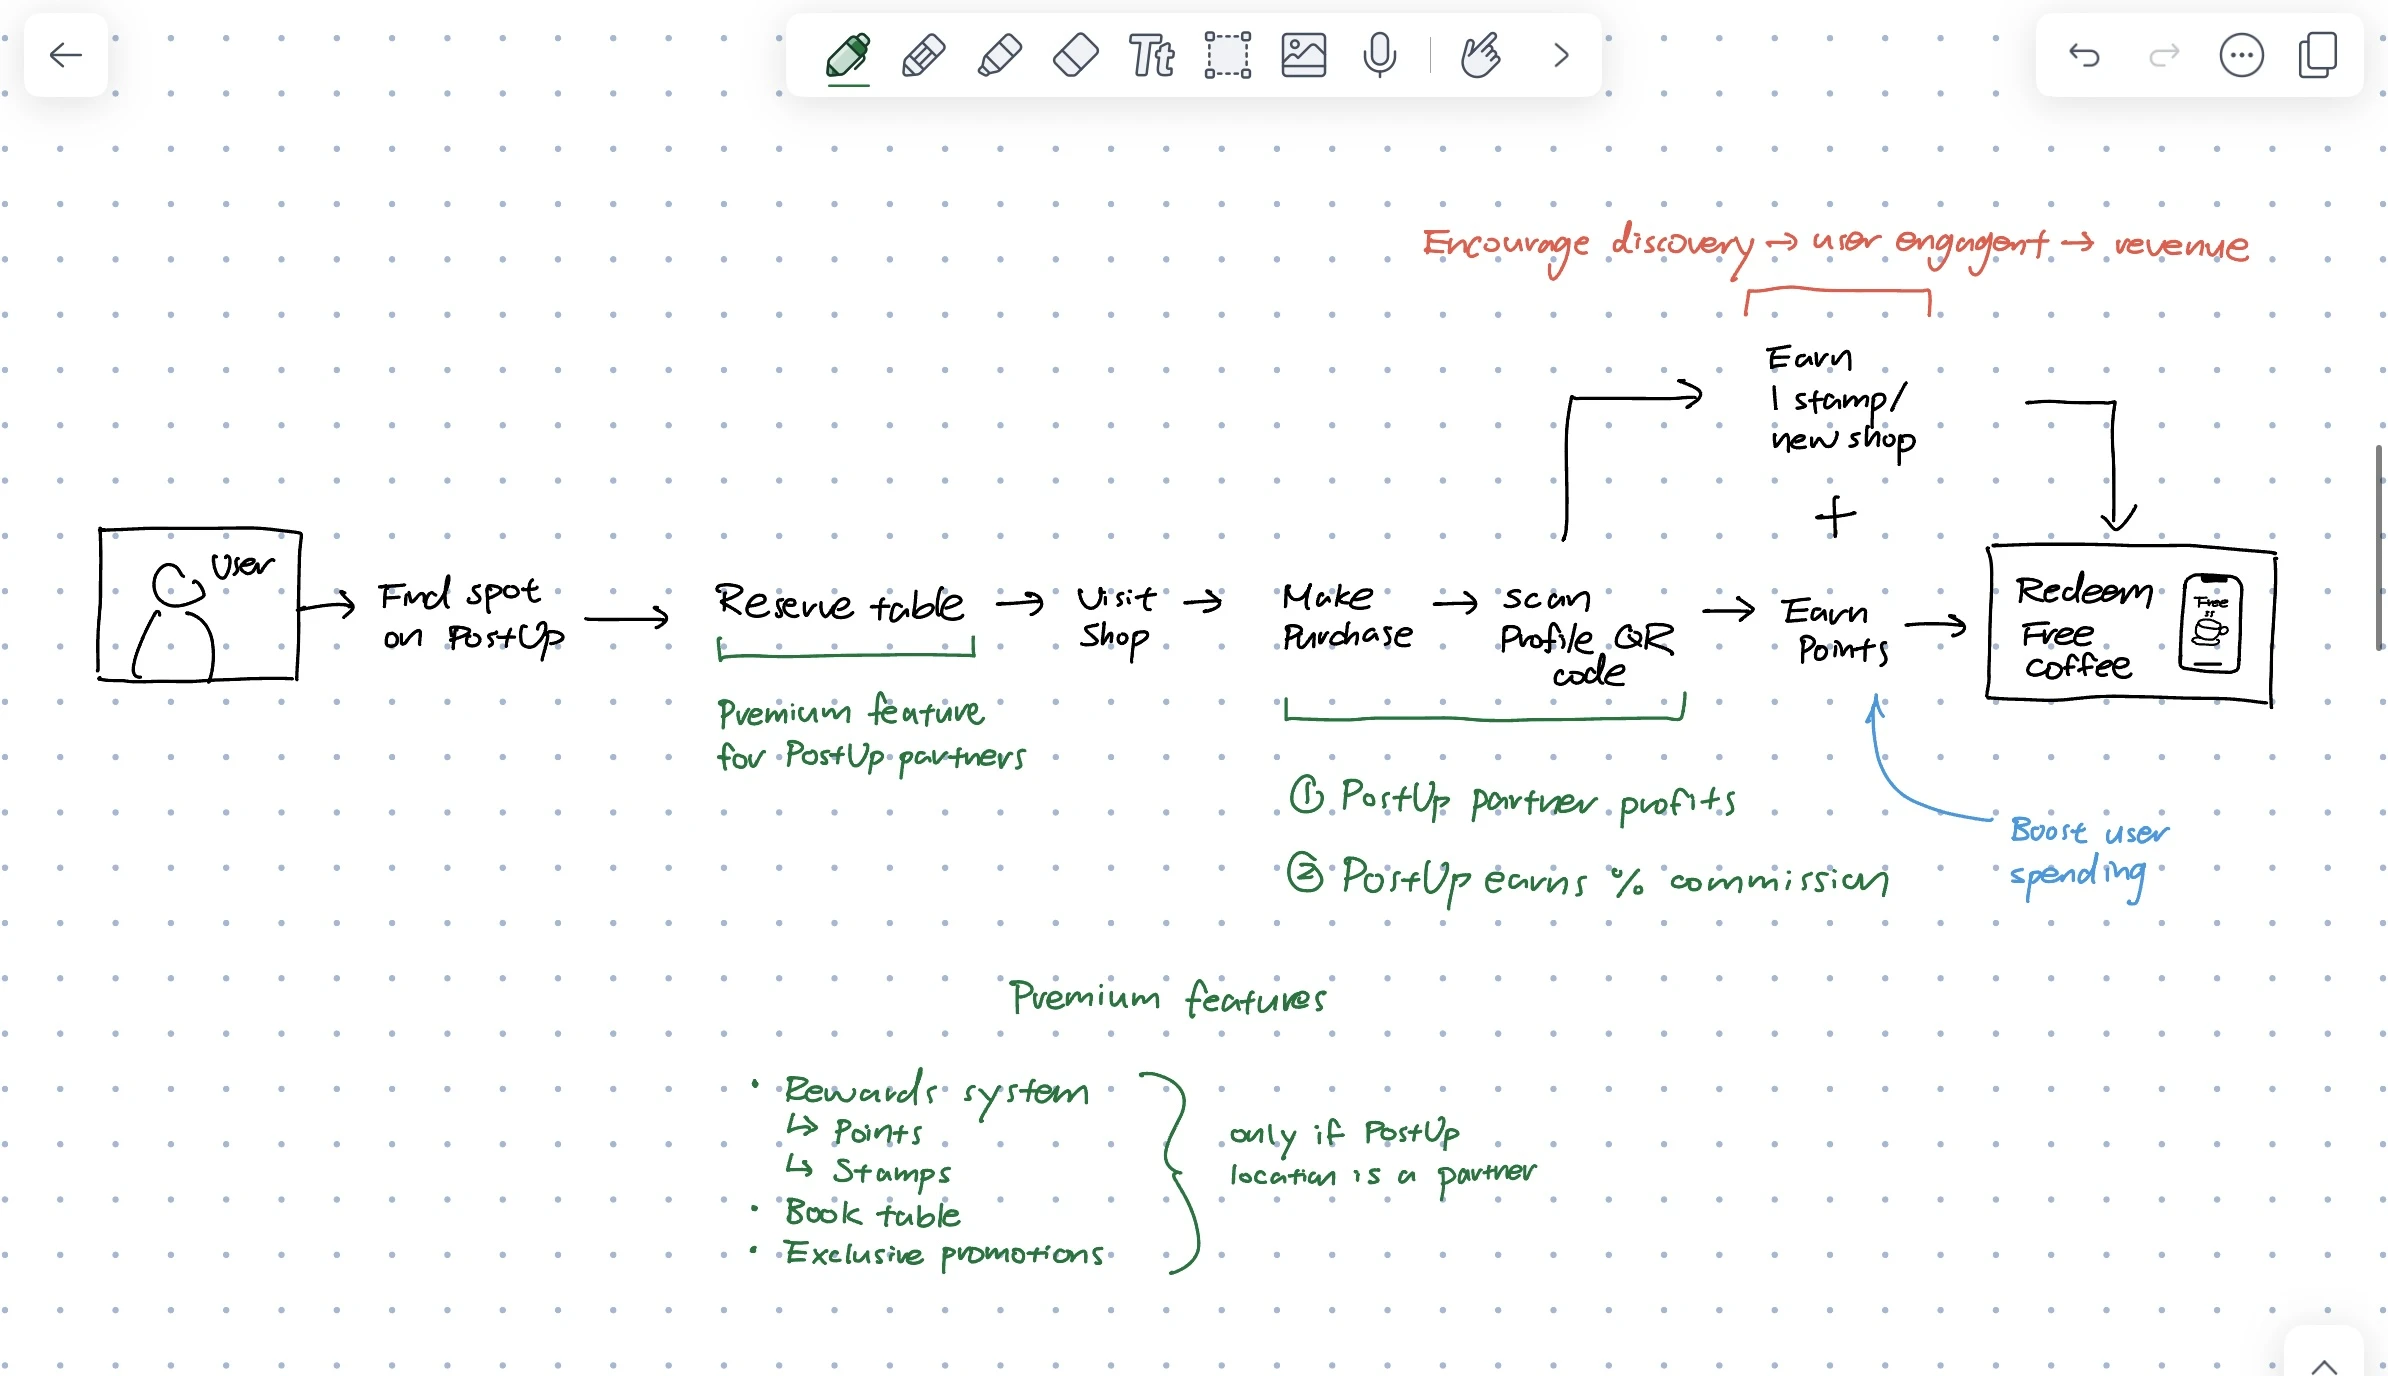 Encourage discovery → user engagent → revenue
Earn
1 stamp/
new shop
+
User
Find spot
on PostUp
Reserve table
Visit
Shop
Make
Purchase
Scan
Profile QR
code
Earn
Points
Redeem
Free
coffee
Free
Premium feature
for PostUp partners
① PostUp partner profits
② PostUp earns % commission
Boost user
spending
Premium features
• Rewards system
↳ Points
↳ Stamps
• Book table
• Exclusive promotions
only if PostUp
location is a partner
Tt